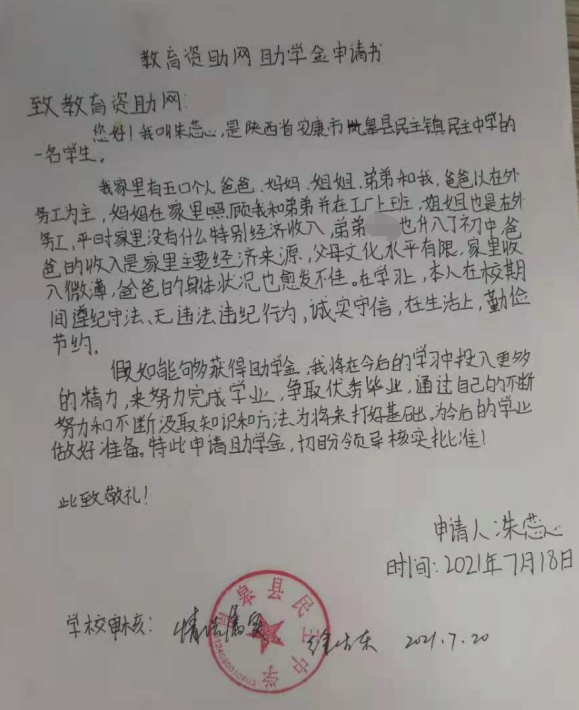 教育资助网助学金申请书
致教育资助网:
您好!我叫朱蕊心,是陕西省安康市 皋县民主镇民主中学的
一名学生。
我家里有五口个人爸爸、妈妈、姐姐、弟弟和我,爸爸以在外
务工为主,妈妈在家里照顾我和弟弟并在工厂上班,姐姐也是在外
务工,平时家里没有什么特别经济收入,弟弟 也升入了初中,爸
爸的收入是家里主要经济来源,父母文化水平有限,家里收
入微薄,爸爸的身体状况也愈发不佳。在学习上,本人在校期
间遵纪守法、无违法违纪行为,诚实守信,在生活上,勤俭
节约。
假如能够获得助学金,我将在今后的学习中投入更多
的精力,来努力完成学业,争取优秀毕业,通过自己的不断
努力和不断汲取知识和方法,为将来打好基础。为今后的学业
做好准备。特此申请助学金,切盼领导核实批准!
此致敬礼!
申请人:朱蕊心
时间:2021年7月18日
学校审核: 情况属实 2021.7.20
皋县民主中学